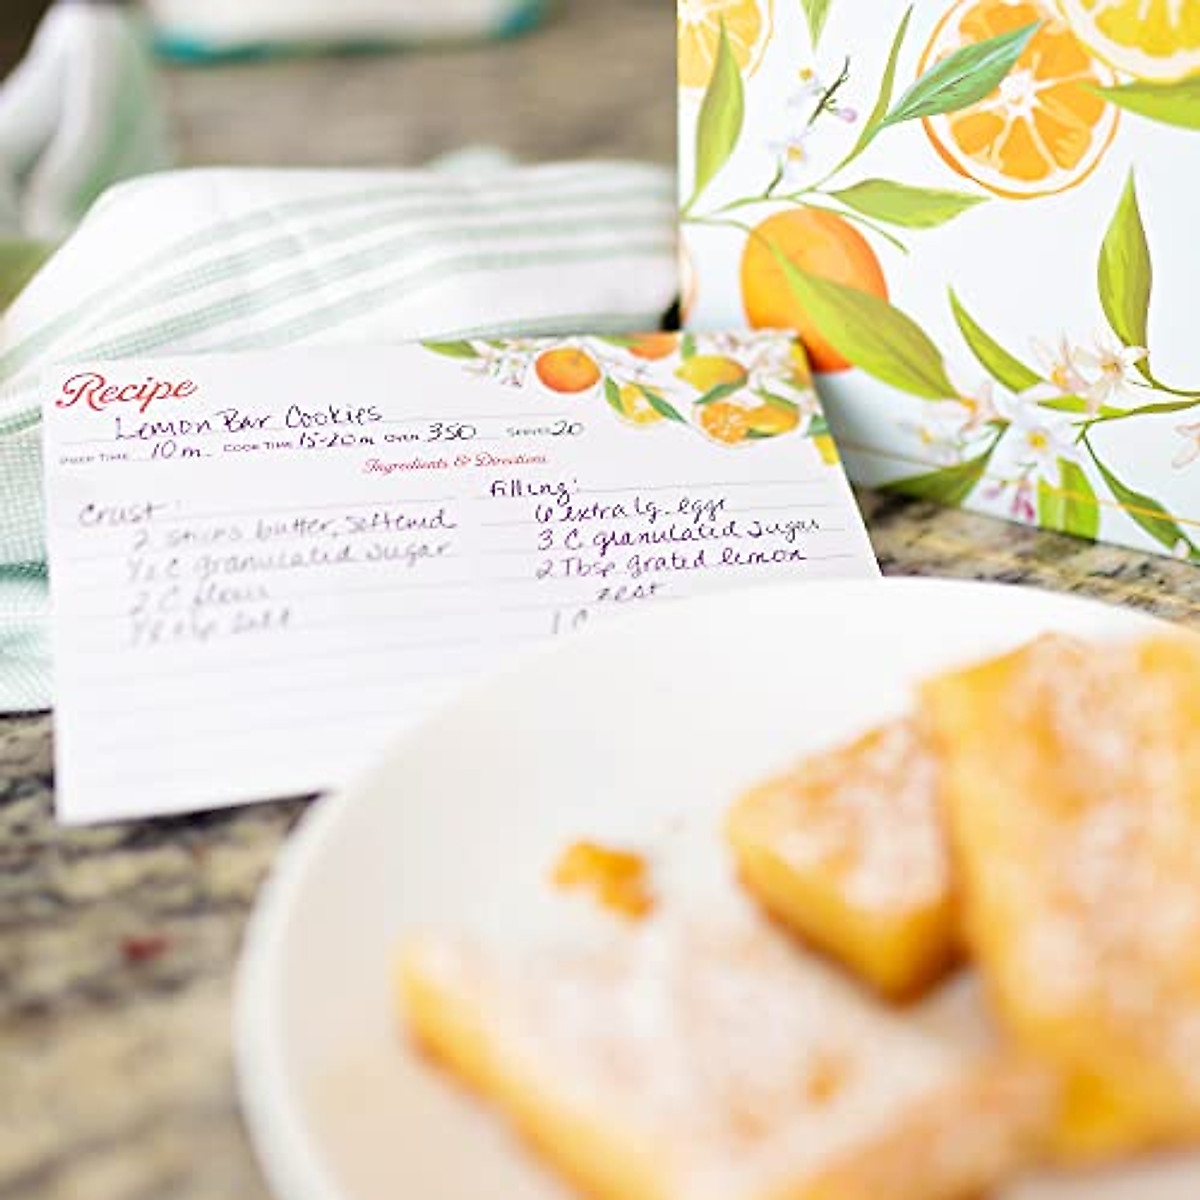 Recipe
Lemon Bar Cookies
PREP TIME 10 m COOK TIME 15-20 m OVEN 350 SERVES 20
Ingredients & Directions
Crust:
2 sticks butter, softened
1/2 C granulated sugar
2 C flour
1/8 tsp salt
Filling:
6 extra lg eggs
3 C granulated sugar
2 Tbsp grated lemon
zest
1 C